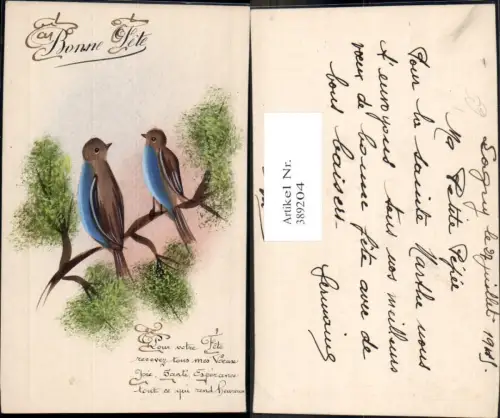 Bonne Fête
Pour votre Fête
recevez tous mes Voeux
Joie, Santé, Esperance
tout ce qui rend heureux
Artikel Nr.
389204
Lagny le juillet 1918.
Ma Petite Pépée
Pour la sainte Marthe nous
t'envoyons tous nos meilleurs
voeux de bonne fête avec de
bons baisers.
Germaine